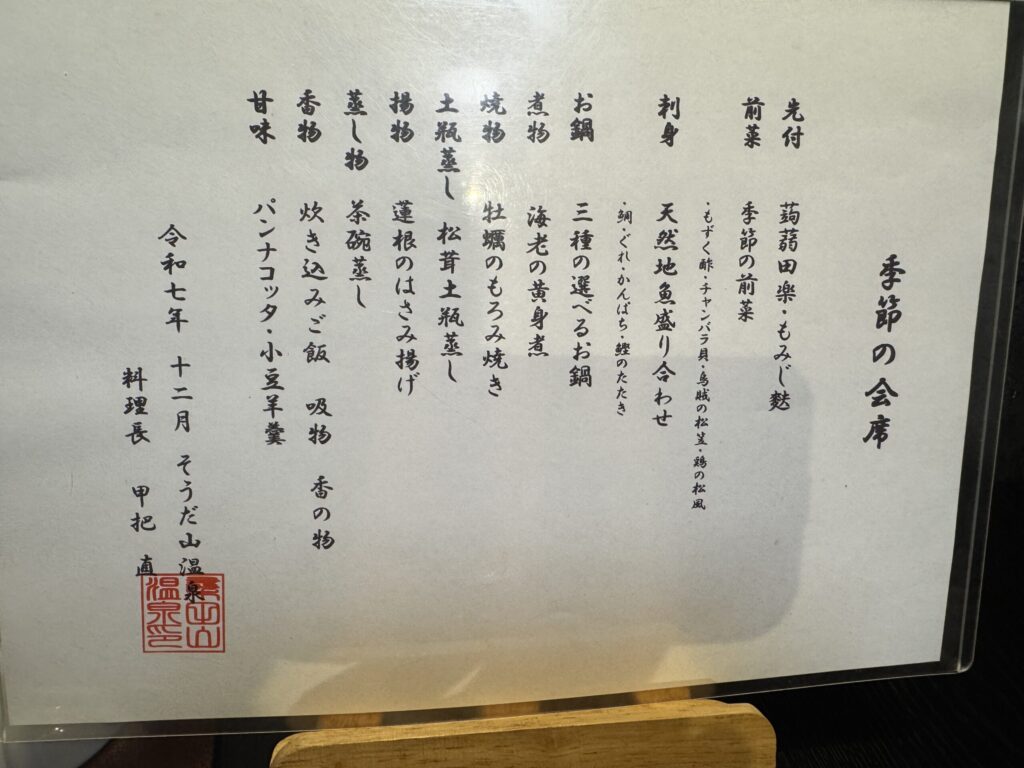 季節の会席
先付　蒟蒻田楽・もみじ麩
前菜　季節の前菜
・もずく酢・チャンバラ貝・烏賊の松笠・鶏の松風
刺身　天然地魚盛り合わせ
・鯛・ぐれ・かんぱち・鰹のたたき
お鍋　三種の選べるお鍋
煮物　海老の黄身煮
焼物　牡蠣のもろみ焼き
土瓶蒸し　松茸土瓶蒸し
揚物　蓮根のはさみ揚げ
蒸し物　茶碗蒸し
香物　炊き込みご飯　吸物　香の物
甘味　パンナコッタ・小豆羊羹
令和七年　十二月　そうだ山温泉
料理長　甲把　直